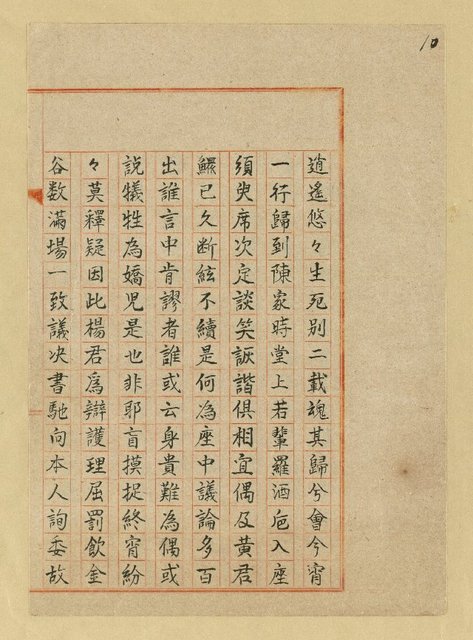 10
逍遙悠々生死別二載魂其歸兮會今宵
一行歸到陳家時堂上若輩羅酒巵入座
須臾席次定談笑詼諧俱相宜偶及黃君
鰥已久断絃不續是何為座中議論多百
出誰言中肯謬者誰或云身貴難為偶或
説犠牲為嬌児是也非耶盲摸捉終宵紛
々莫釋疑因此楊君爲辯護理屈罰飲金
谷数滿場一致議决書馳向本人詢委故